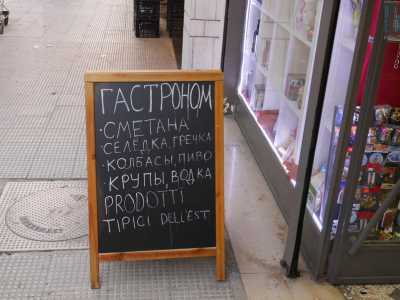 ГАСТРОНОМ
·СМЕТАНА
·СЕЛЁДКА, ГРЕЧКА
·КОЛБАСЫ, ПИВО
·КРУПЫ, ВОДКА
PRODOTTI
TIPICI DELL'EST